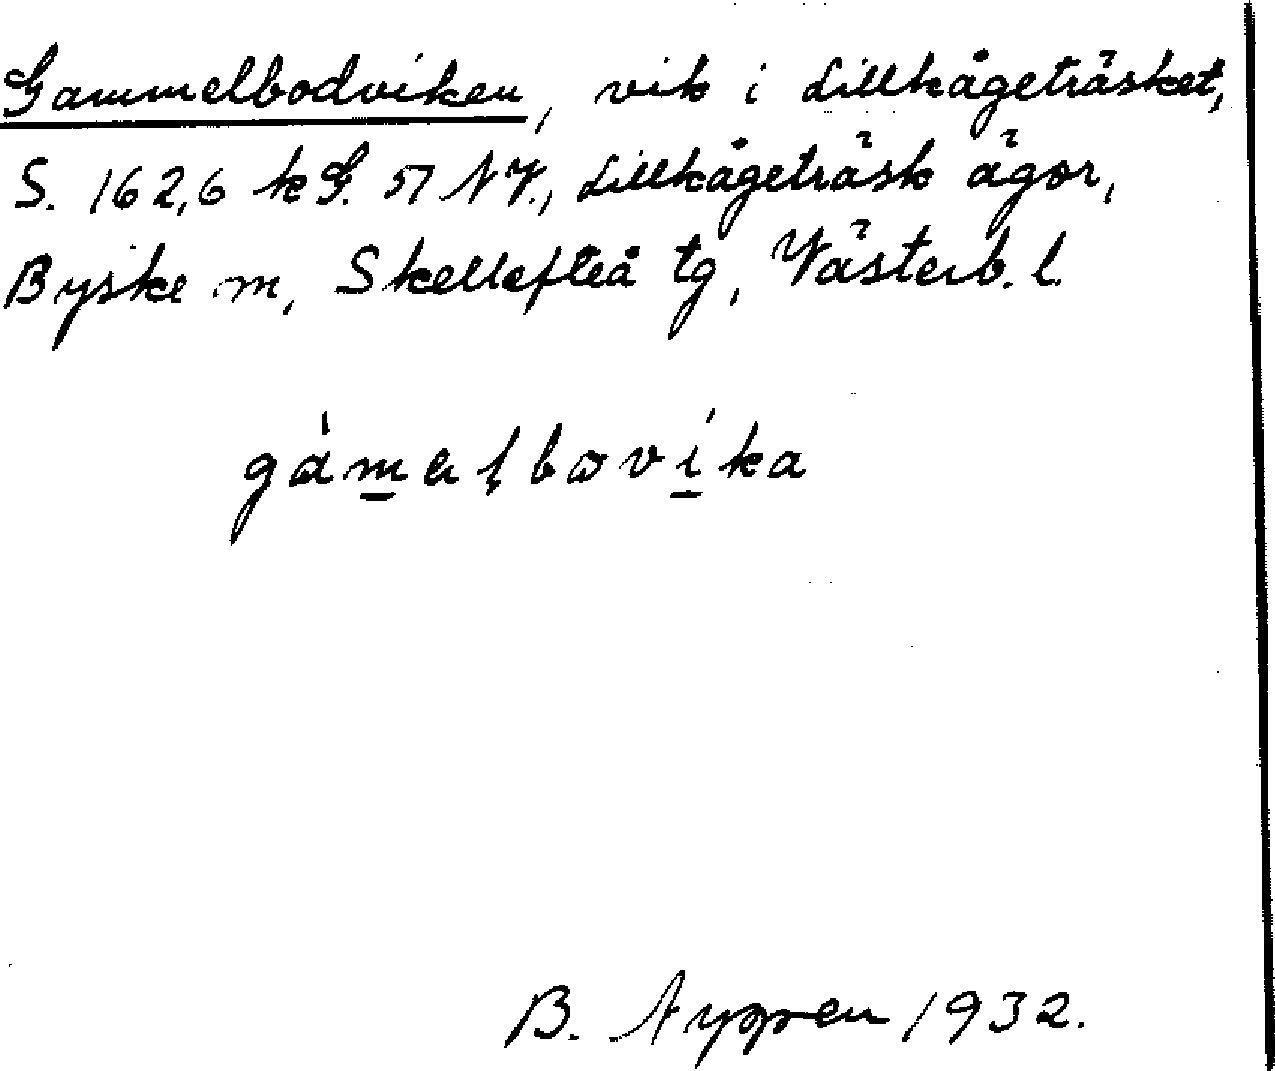 Gammelbodviken, vik i Lillkågeträsket,
S. 162,6 kG. 57 NV., Lillkågeträsk ägor,
Byske sn, Skellefteå tg, Västerb. l.
gámalbovíka
B. Nyppen 1932.